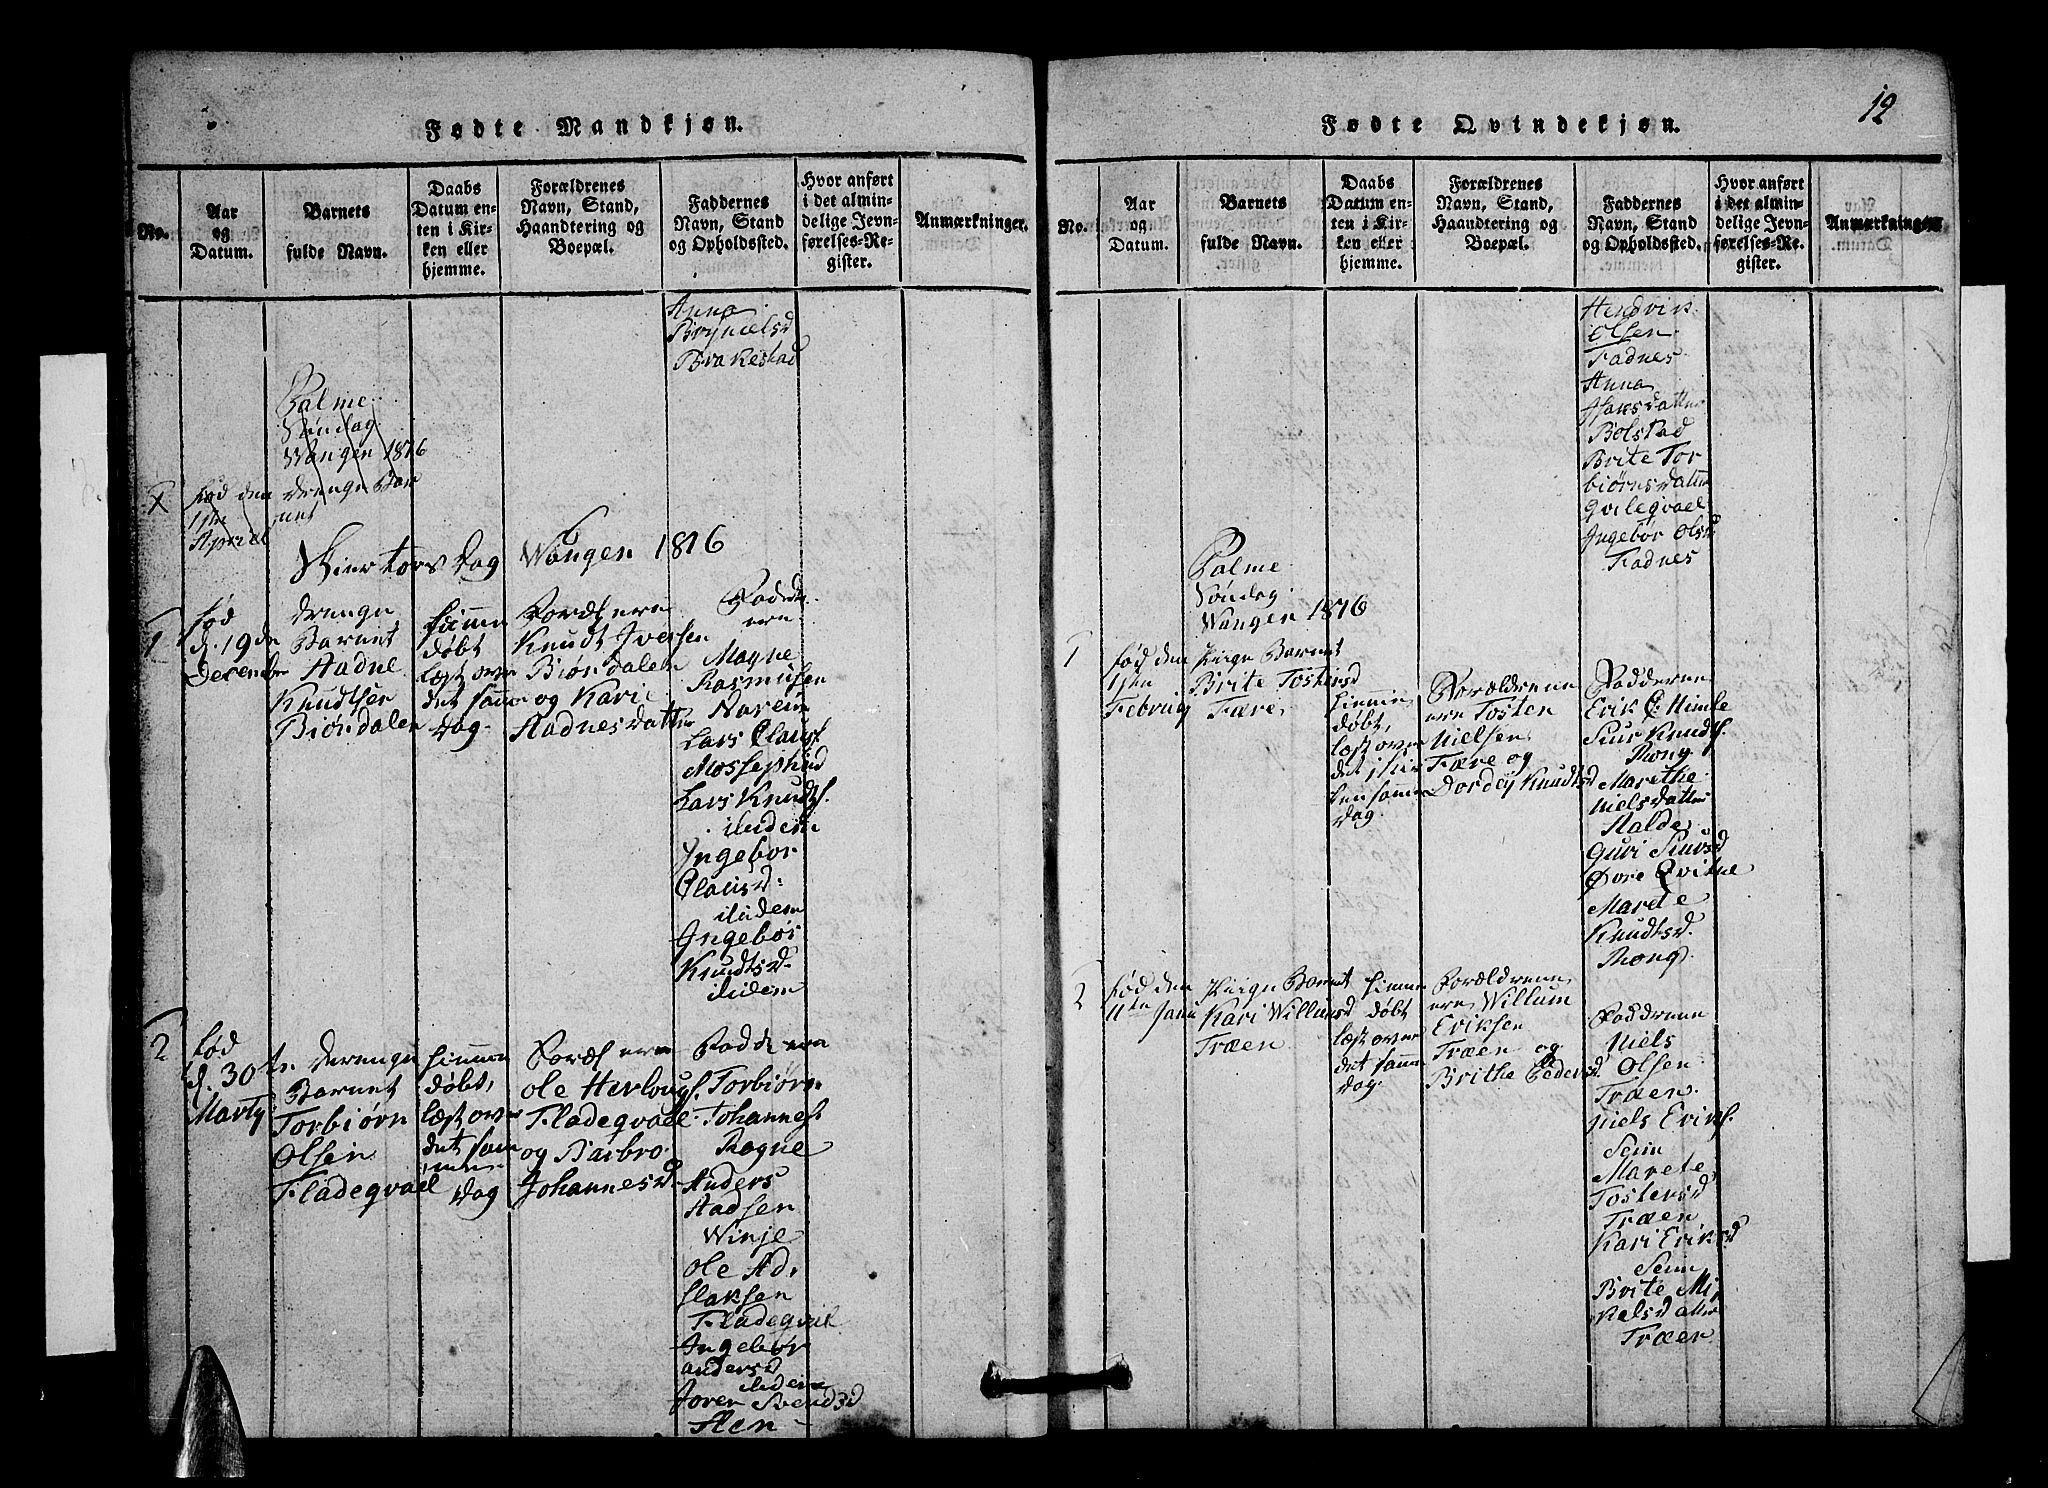 Fødte Mandkjøn.
No.
Aar
og
Datum.
Barnets
fulde Navn.
Daabs
Datum en-
ten i Kir-
ken eller
hjemme.
Forældrenes
Navn, Stand,
Haandtering og
Boepæl.
Faddernes
Navn, Stand
og Opholdssted.
Hvor anført
i det almin-
delige Jevn-
førelses-Re-
gister.
Anmærkninger.
Anna
Brynielsd
Brakestad
Palme
Søndag
Wangen 1816
Fød den
1ste
April
drenge Bar
net
Skier torsdag Wangen 1816
1
Fød
d. 19de
Decembr
drenge
Barnet
Aadne
Knudtsen
Biørdalen
hiemme
døbt
læst over
det samme
dag
Foræl ere
Knudt Iversen
Biørdalen
og Kari
Aadnesdatter
Fadd
ere
Magne
Rasmusen
Lars Olaus.
Lars Knudts.
ibidem
Ingebor
Olausd:
ibidem
Ingebør
Knudtsd
ibidem
2
Fød
d. 30te
Marty
drenge
Barnet
Torbiørn
Olsen
Fladeqvael
hiemme
døbt,
læst over
det sam
me
dag
Foræl ere
Ole Herlougs.
Fladeqvael
og Barbro
Johannesd
Fadd ere
Torbiørn
Johannes.
Rogne
Anders
Aadsen
Winje
Ole Ad,
slaksen
Fladeqvael
Ingebør
andersd
ibidem
Joren Svendsd
Aen
Fødte Qvindekjøn.
12
No.
Aar
og
Datum.
Barnets
fulde Navn.
Daabs
Datum en-
ten i Kir-
ken eller
hjemme.
Forældrenes
Navn, Stand,
Haandtering og
Boepæl.
Faddernes
Navn, Stand
og Opholdssted.
Hvor anført
i det almin-
delige Jevn-
førelses-Re-
gister.
Anmærkninger
Hendrik
Olsen
Fadnes
Anna
Isaksdatter
Bolstad
Brite Tor
biørnsdatter
Qvileqvael
Ingebør Olsd
Fadnes
Palme
Søndag
Wangen 1816
1
Fød den
1sten
Februy
Pige Barnet
Brite Tostensd
Fære
hiemme
døbt,
læst over
det i kir
ken samme
dag
Forældrene
ere Tosten
Nielsen
Fære og
Dordey Knudtsd
Fadderne
Erik O: Himle
Siur Knudts.
Rong
Marethe
Nielsdatter
Guri Siursd
Øvre Qvitne
Marete
Knudtsd.
Rong
2
Fød den
11te Janu
Pige Barnet
Kari Willumsd
Træen
hiemme
døbt
læst over
det samme
dag
Forældrene
ere Willum
Eriksen
Træen og
Brithe Pedersd
Faddrene
Niels
Olsen
Træen
Niels Eriks.
Seim
Marete
Tostensd
Træen
Kari Eriksd
Seim
Brite Mi,
kelsdatter
Træen